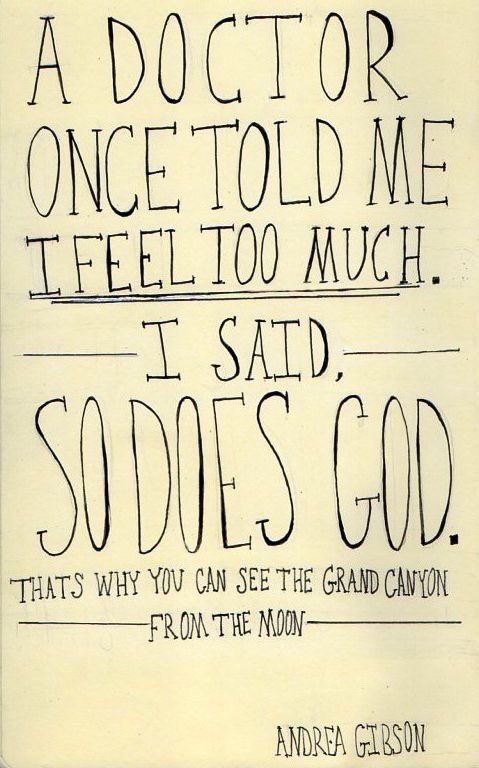 A DOCTOR
ONCE TOLD ME
I FEEL TOO MUCH.
I SAID,
SO DOES GOD.
THATS WHY YOU CAN SEE THE GRAND CANYON
FROM THE MOON
ANDREA GIBSON